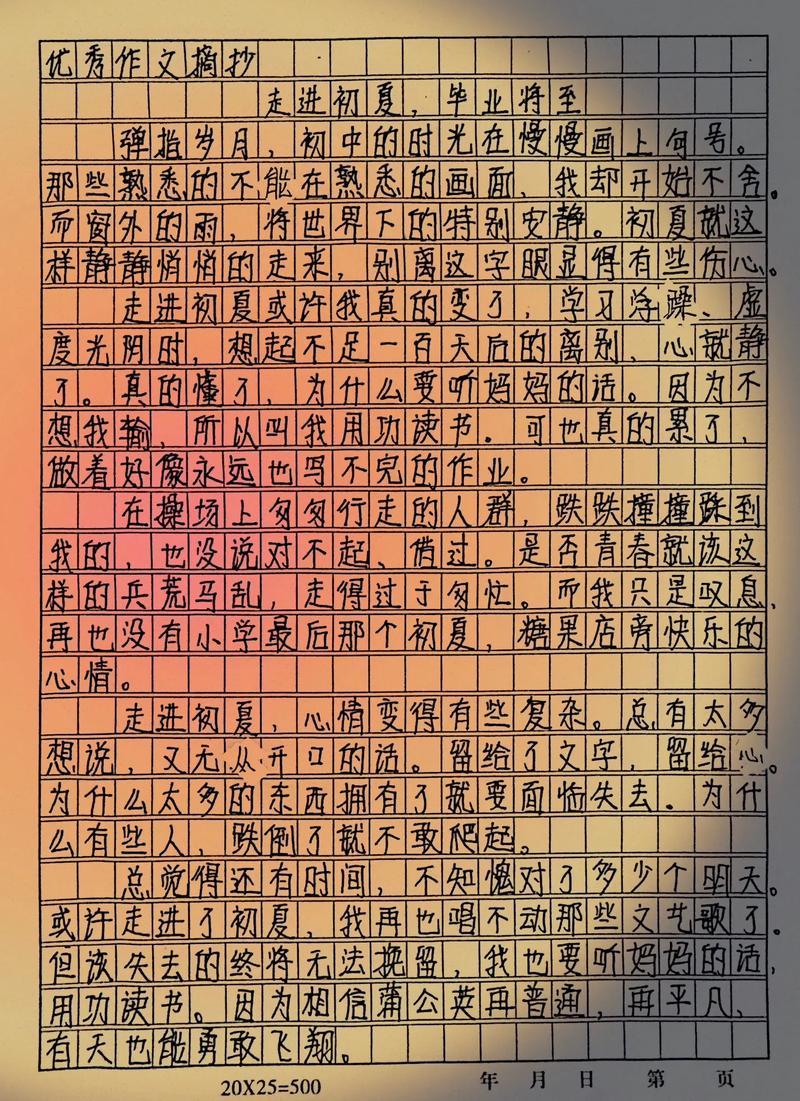 优秀作文摘抄
走进初夏，毕业将至
弹指岁月，初中的时光在慢慢画上句号。
那些熟悉的不能在熟悉的画面、我却开始不舍。
而窗外的雨，将世界下的特别安静。初夏就这
样静静悄悄的走来，别离这字眼显得有些伤心。
走进初夏或许我真的变了，学习浮躁、虚
度光阴时，想起不足一百天后的离别，心就静
了。真的懂了，为什么要听妈妈的话。因为不
想我输，所以叫我用功读书．可也真的累了，
做着好像永远也写不完的作业。
在操场上匆匆行走的人群，跌跌撞撞跺到
我的、也没说对不起、借过。是否青春就该这
样的兵荒马乱，走得过于匆忙。而我只是叹息、
再也没有小学最后那个初夏，糖果店旁快乐的
心情。
走进初夏，心情变得有些复杂。总有太多
想说，又无从开口的话。留给了文字，留给心。
为什么太多的东西拥有了就要面临失去．为什
么有些人，跌倒了就不敢爬起。
总觉得还有时间，不知愧对了多少个明天。
或许走进了初夏，我再也唱不动那些文艺歌了。
但该失去的终将无法挽留，我也要听妈妈的话，
用功读书。因为相信蒲公英再普通，再平凡、
有天也能勇敢飞翔。
20X25=500
年 月 日 第 页